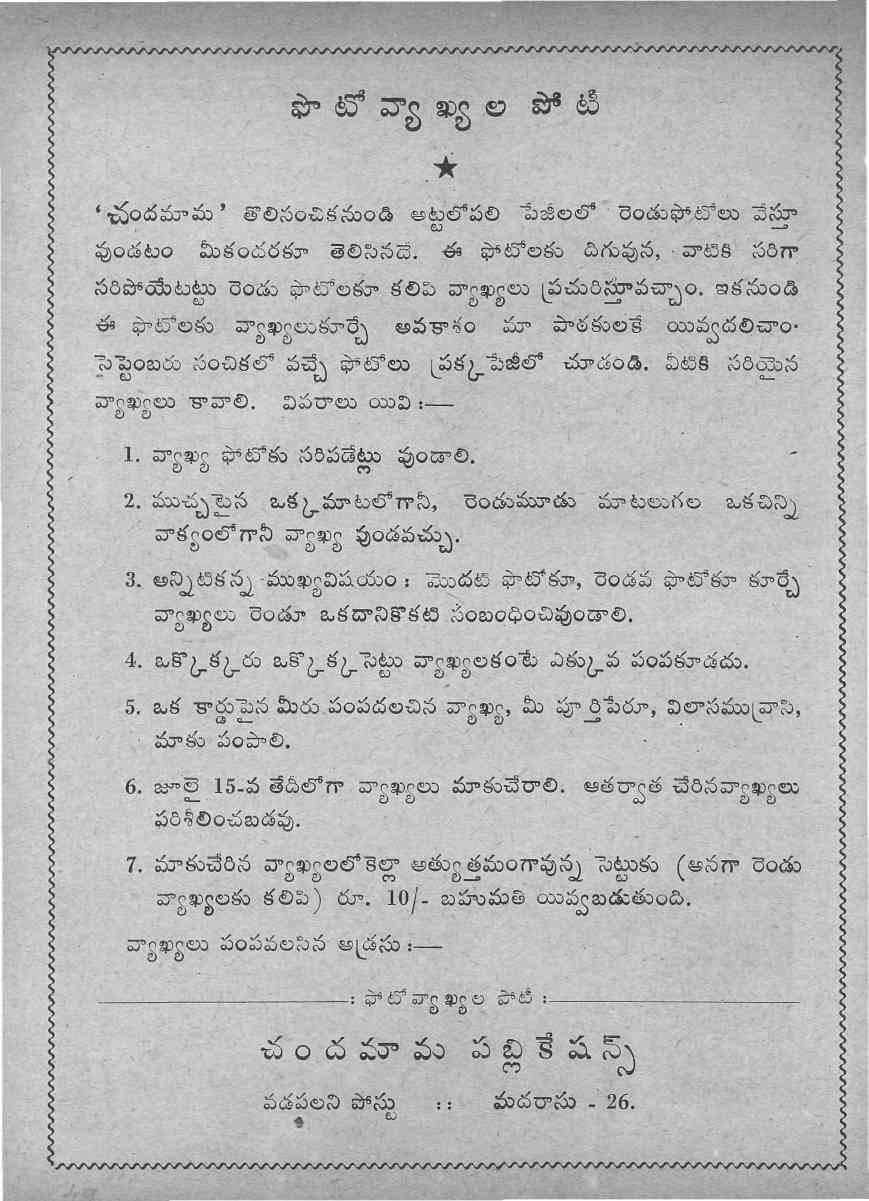 ఫొటోవ్యాఖ్యల పోటీ
★
‘చందమామ’ తొలిసంచికనుండి అట్టలోపలి పేజీలలో రెండుఫోటోలు వేస్తూ
వుండటం మీకందరకూ తెలిసినదే. ఈ ఫోటోలకు దిగువున, వాటికి సరిగా
సరిపోయేటట్టు రెండు ఫొటోలకూ కలిపి వ్యాఖ్యలు ప్రచురిస్తూవచ్చాం. ఇకనుండి
ఈ ఫొటోలకు వ్యాఖ్యలుకూర్చే అవకాశం మా పాఠకులకే యివ్వదలిచాం.
సెప్టెంబరు సంచికలో వచ్చే ఫోటోలు ప్రక్కపేజీలో చూడండి. వీటికి సరియైన
వ్యాఖ్యలు కావాలి. వివరాలు యివి :—
1. వ్యాఖ్య ఫోటోకు సరిపడేట్లు వుండాలి.
2. ముచ్చటైన ఒక్కమాటలోగానీ, రెండుమూడు మాటలుగల ఒకచిన్ని
వాక్యంలోగానీ వ్యాఖ్య వుండవచ్చు.
3. అన్నిటికన్న ముఖ్యవిషయం : మొదటి ఫొటోకూ, రెండవ ఫొటోకూ కూర్చే
వ్యాఖ్యలు రెండూ ఒకదానికొకటి సంబంధించివుండాలి.
4. ఒక్కొక్కరు ఒక్కొక్కసెట్టు వ్యాఖ్యలకంటే ఎక్కువ పంపకూడదు.
5. ఒక కార్డుపైన మీరు పంపదలచిన వ్యాఖ్య, మీ పూర్తిపేరూ, విలాసమువ్రాసి,
మాకు పంపాలి.
6. జూలై 15-వ తేదీలోగా వ్యాఖ్యలు మాకుచేరాలి. ఆతర్వాత చేరినవ్యాఖ్యలు
పరిశీలించబడవు.
7. మాకుచేరిన వ్యాఖ్యలలోకెల్లా అత్యుత్తమంగావున్న సెట్టుకు (అనగా రెండు
వ్యాఖ్యలకు కలిపి) రూ. 10/- బహుమతి యివ్వబడుతుంది.
వ్యాఖ్యలు పంపవలసిన అడ్రసు :—
: ఫోటోవ్యాఖ్యల పోటీ :
చందమామ పబ్లికేషన్స్
వడపలని పోస్టు :: మదరాసు - 26.